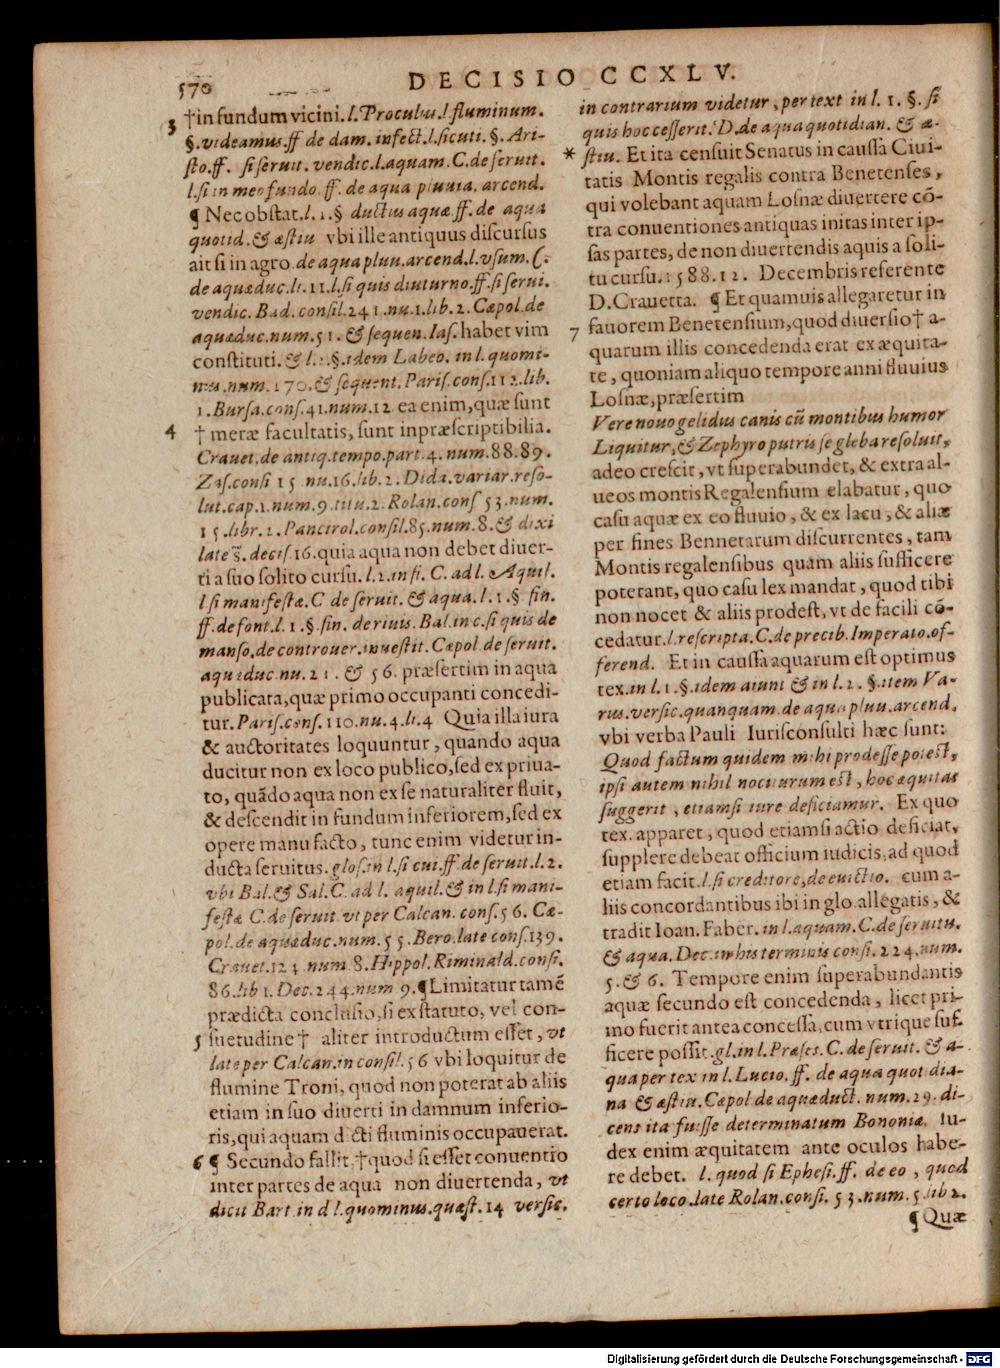 570
DECISIO CCXLV.
3 †in fundum vicini. l. Proculus. l fluminum.
§. videamus. ff de dam. infect. l. sicuti. §. Ari-
sto. ff. si seruit. vendic. l. aquam. C. de seruit.
l. si in meo fundo. ff. de aqua pluuia. arcend.
¶ Nec obstat. l. 1. § ductus aquæ. ff. de aqua
quotid. & æstiu vbi ille antiquus discursus
ait si in agro de aqua pluu. arcend. l. vsum. C.
de aquæduc. lt. 11. l. si quis diuturno. ff. si serui.
vendic. Bad. consil. 241. nu. 1. lib. 2. Cæpol. de
aquæduc. num. 51. & sequen. Ias. habet vim
constituti. & l. 1. §. idem Labeo. in l. quomi-
nus. num. 170. & sequent. Paris. cons. 112. lib.
1. Bursa. cons. 41. num. 12 ea enim, quæ sunt
4 † meræ facultatis, sunt inpræscriptibilia.
Crauet. de antiq. tempo. part. 4. num. 88. 89.
Zas. consi 15 nu. 16. lib. 2. Dida. variar. reso-
lut. cap. 1. num. 9. titu. 2. Rolan. cons 53. num.
15. libr. 2. Pancirol. consil. 85. num. 8. & dixi
late s. decis. 16. quia aqua non debet diuer-
ti a suo solito cursu. l. 2. in fi. C. ad l. Aquil.
l. si manifestæ. C de seruit. & aqua. l. 1. § fin.
ff. de font. l. 1. §. fin. de riuis. Bal. in c. si quis de
manso. de controuer. inuestit. Cæpol. de seruit.
aquæduc. nu. 21. & 56. præsertim in aqua
publicata, quæ primo occupanti concedi-
tur. Paris. cons. 110. nu. 4. li. 4 Quia illa iura
& auctoritates loquuntur, quando aqua
ducitur non ex loco publico, sed ex priua-
to, quādo aqua non ex se naturaliter fluit,
& descendit in fundum inferiorem, sed ex
opere manu facto, tunc enim videtur in-
ducta seruitus. glos. in l. si cui. ff. de seruit. l. 2.
vbi Bal. & Sal. C. ad l. aquil. & in l. si mani-
festæ C. de seruit vt per Calcan. cons. 56. Cæ-
pol. de aquæduc. num. 55. Bero. late cons. 139.
Crauet. 124 num 8. Hippol. Riminald. consi.
86. lib 1. Dec. 244. num 9. ¶ Limitatur tamē
prædicta conclusio, si ex statuto, vel con-
5 suetudine † aliter introductum esset, vt
late per Calcan. in consil. 56 vbi loquitur de
flumine Troni, quod non poterat ab aliis
etiam in suo diuerti in damnum inferio-
ris, qui aquam dicti fluminis occupauerat.
6 ¶ Secundo fallit, † quod si esset conuentio
inter partes de aqua non diuertenda, vt
dicit Bart in d l. quominus. quæst. 14 versic.
in contrarium videtur, per text in l. 1. §. si
quis hoc cesserit. D. de aqua quotidian. & æ-
* stiu. Et ita censuit Senatus in caussa Ciui-
tatis Montis regalis contra Benetenses,
qui volebant aquam Losnæ diuertere cō-
tra conuentiones antiquas initas inter ip-
sas partes, de non diuertendis aquis a soli-
tu cursu. 1588. 12. Decembris referente
D. Crauetta. ¶ Et quamuis allegaretur in
7 fauorem Benetensium, quod diuersio † a-
quarum illis concedenda erat ex æquita-
te, quoniam aliquo tempore anni fluuius
Losnæ, præsertim
Vere nouo gelidus canis cū montibus humor
Liquitur, & Zephyro putris se gleba resoluit,
adeo crescit, vt superabundet, & extra al-
ueos montis Regalensium elabatur, quo
casu aquæ ex eo fluuio, & ex lacu, & aliæ
per fines Bennetarum discurrentes, tam
Montis regalensibus quam aliis sufficere
poterant, quo casu lex mandat, quod tibi
non nocet & aliis prodest, vt de facili cō-
cedatur. l. rescripta. C. de precib. Imperato. of-
ferend. Et in caussa aquarum est optimus
tex. in l. 1. §. idem aiunt & in l. 2. §. item Va-
rus. versic. quanquam. de aqua pluu. arcend.
vbi verba Pauli Iurisconsulti hæc sunt:
Quod factum quidem mihi prodesse potest,
ipsi autem nihil nociturum est, hoc æquitas
suggerit, etiamsi iure deficiamur. Ex quo
tex. apparet, quod etiamsi actio deficiat,
supplere debeat officium iudicis, ad quod
etiam facit. l. si creditore, de euictio. cum a-
liis concordantibus ibi in glo. allegatis, &
tradit Ioan. Faber. in l. aquam. C. de seruitu.
& aqua. Dec. in his terminis consi. 224. num.
5. & 6. Tempore enim superabundantis
aquæ secundo est concedenda, licet pri-
mo fuerit antea concessa, cum vtrique suf-
ficere possit. gl. in l. Præses. C. de seruit. & a-
qua per tex in l. Lucio. ff. de aqua quotidia-
na & æstiu. Cæpol. de aquæduct. num. 29. di-
cens ita fuisse determinatum Bononiæ. Iu-
dex enim æquitatem ante oculos habe-
re debet. l. quod si Ephesi. ff. de eo, quod
certo loco. late Rolan. consi. 53. num. 5. lib 2.
¶ Quæ
Digitalisierung gefördert durch die Deutsche Forschungsgemeinschaft - DFG